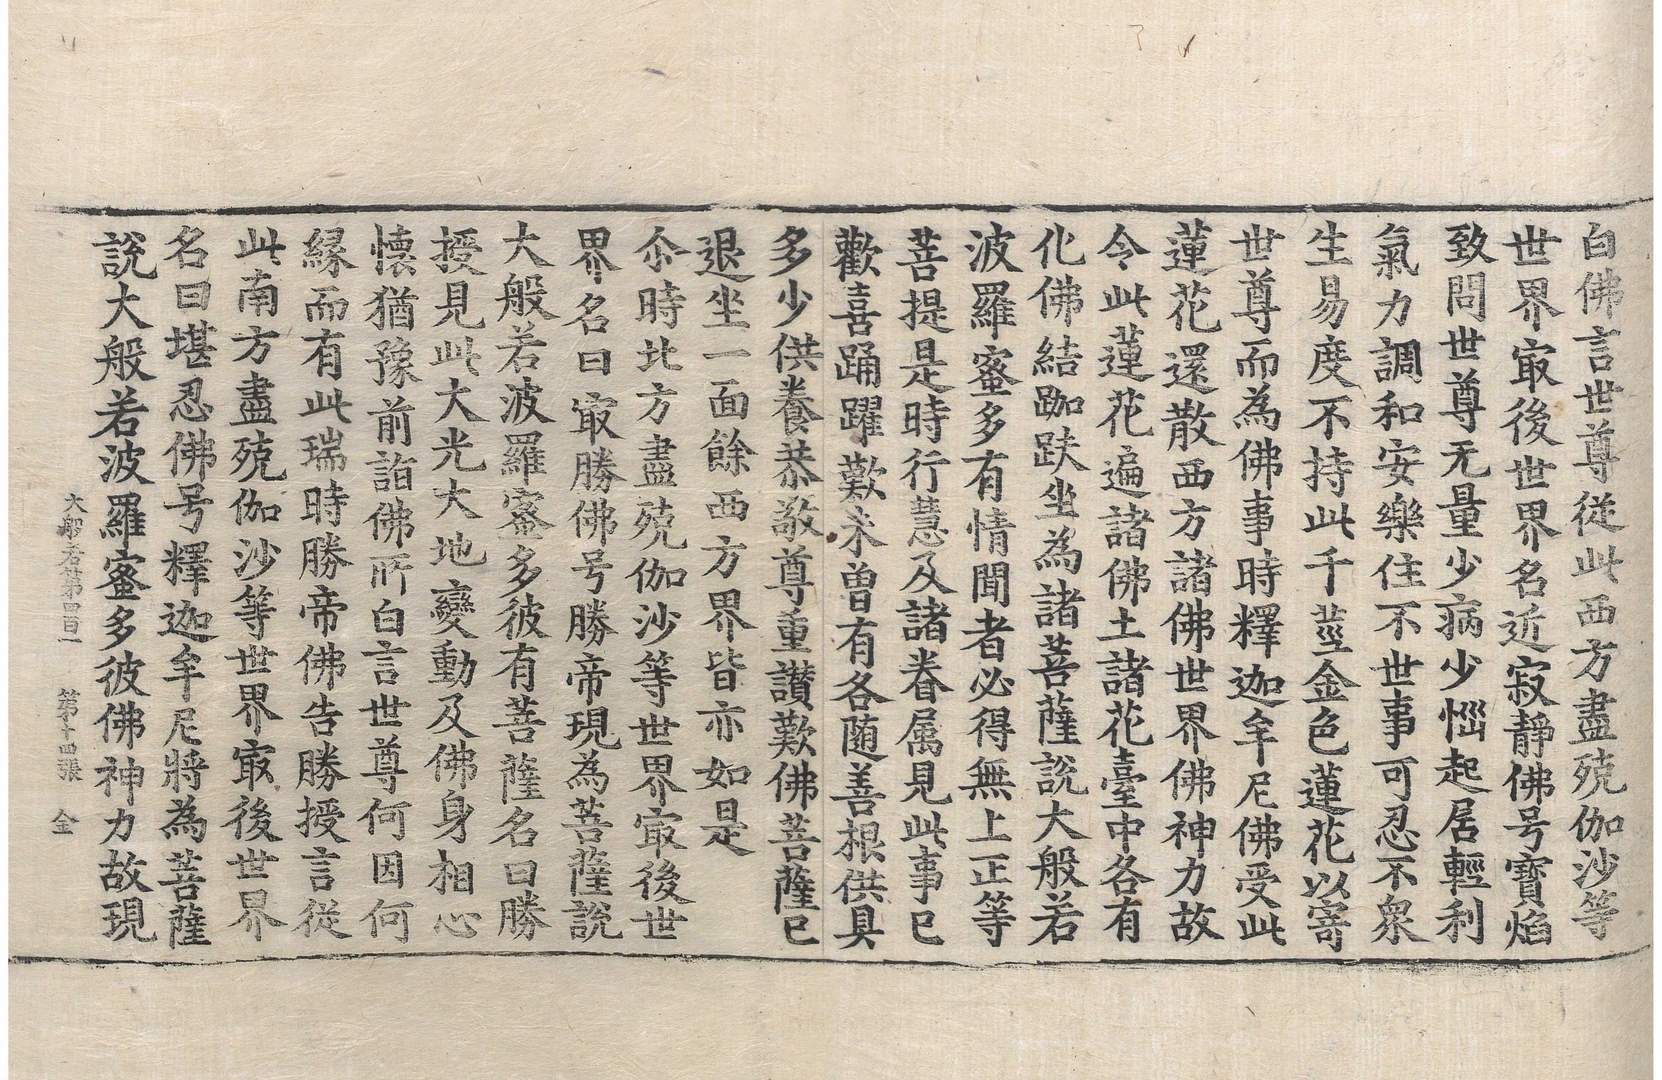 白佛言世尊從此西方盡殑伽沙等
世界㝡後世界名近寂靜佛号寶焰
致問世尊无量少病少惱起居輕利
氣力調和安樂住不世事可忍不衆
生易度不持此千莖金色蓮花以寄
世尊而為佛事時釋迦牟尼佛受此
蓮花還散西方諸佛世界佛神力故
令此蓮花遍諸佛土諸花臺中各有
化佛結跏趺坐為諸菩薩說大般若
波羅蜜多有情聞者必得無上正等
菩提是時行慧及諸眷属見此事已
歡喜踊躍歎未曾有各随善根供具
多少供養恭敬尊重讃歎佛菩薩已
退坐一面餘西方界皆亦如是
尒時北方盡殑伽沙等世界㝡後世
界名曰㝡勝佛号勝帝現為菩薩說
大般若波羅蜜多彼有菩薩名曰勝
授見此大光大地變動及佛身相心
懐猶豫前詣佛所白言世尊何因何
縁而有此瑞時勝帝佛告勝授言從
此南方盡殑伽沙等世界㝡後世界
名曰堪忍佛号釋迦牟尼將為菩薩
說大般若波羅蜜多彼佛神力故現
大般若第四百一 第十四張 金